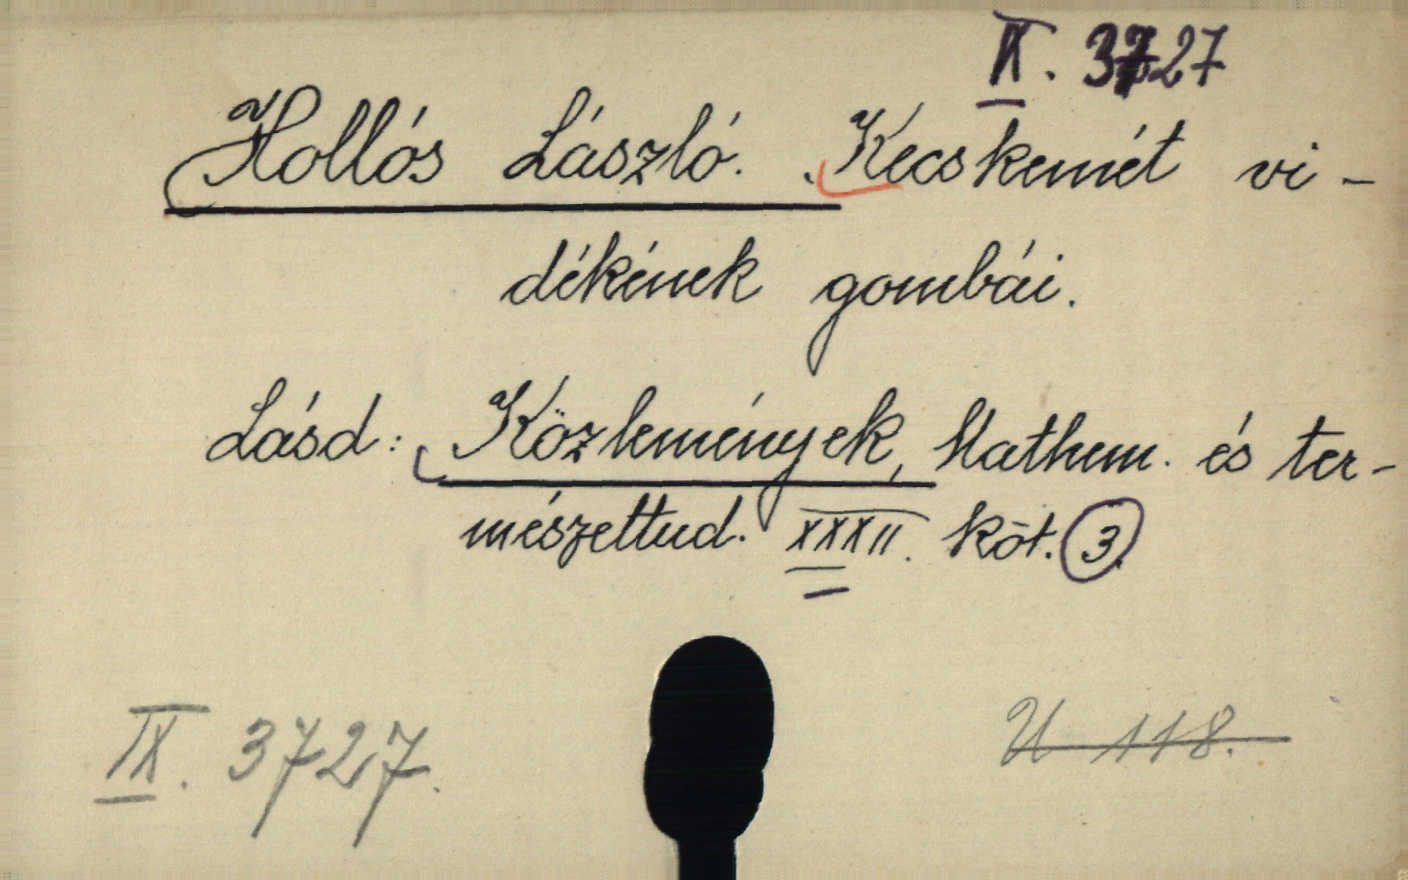 IX. 3727
Hollós László. Kecskemét vi-
dékének gombái.
Lásd: Közlemények, Mathem. és ter-
mészettud. XXXII. köt. 3.
IX. 3727.
U 118.